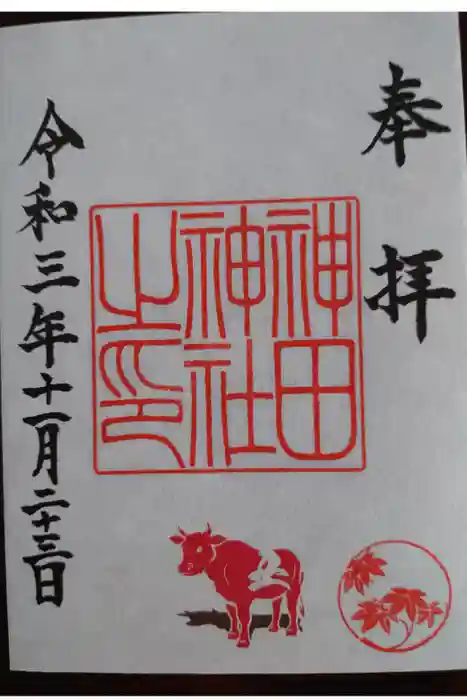 奉拝
神田
神社
之印
令和三年十一月二十三日